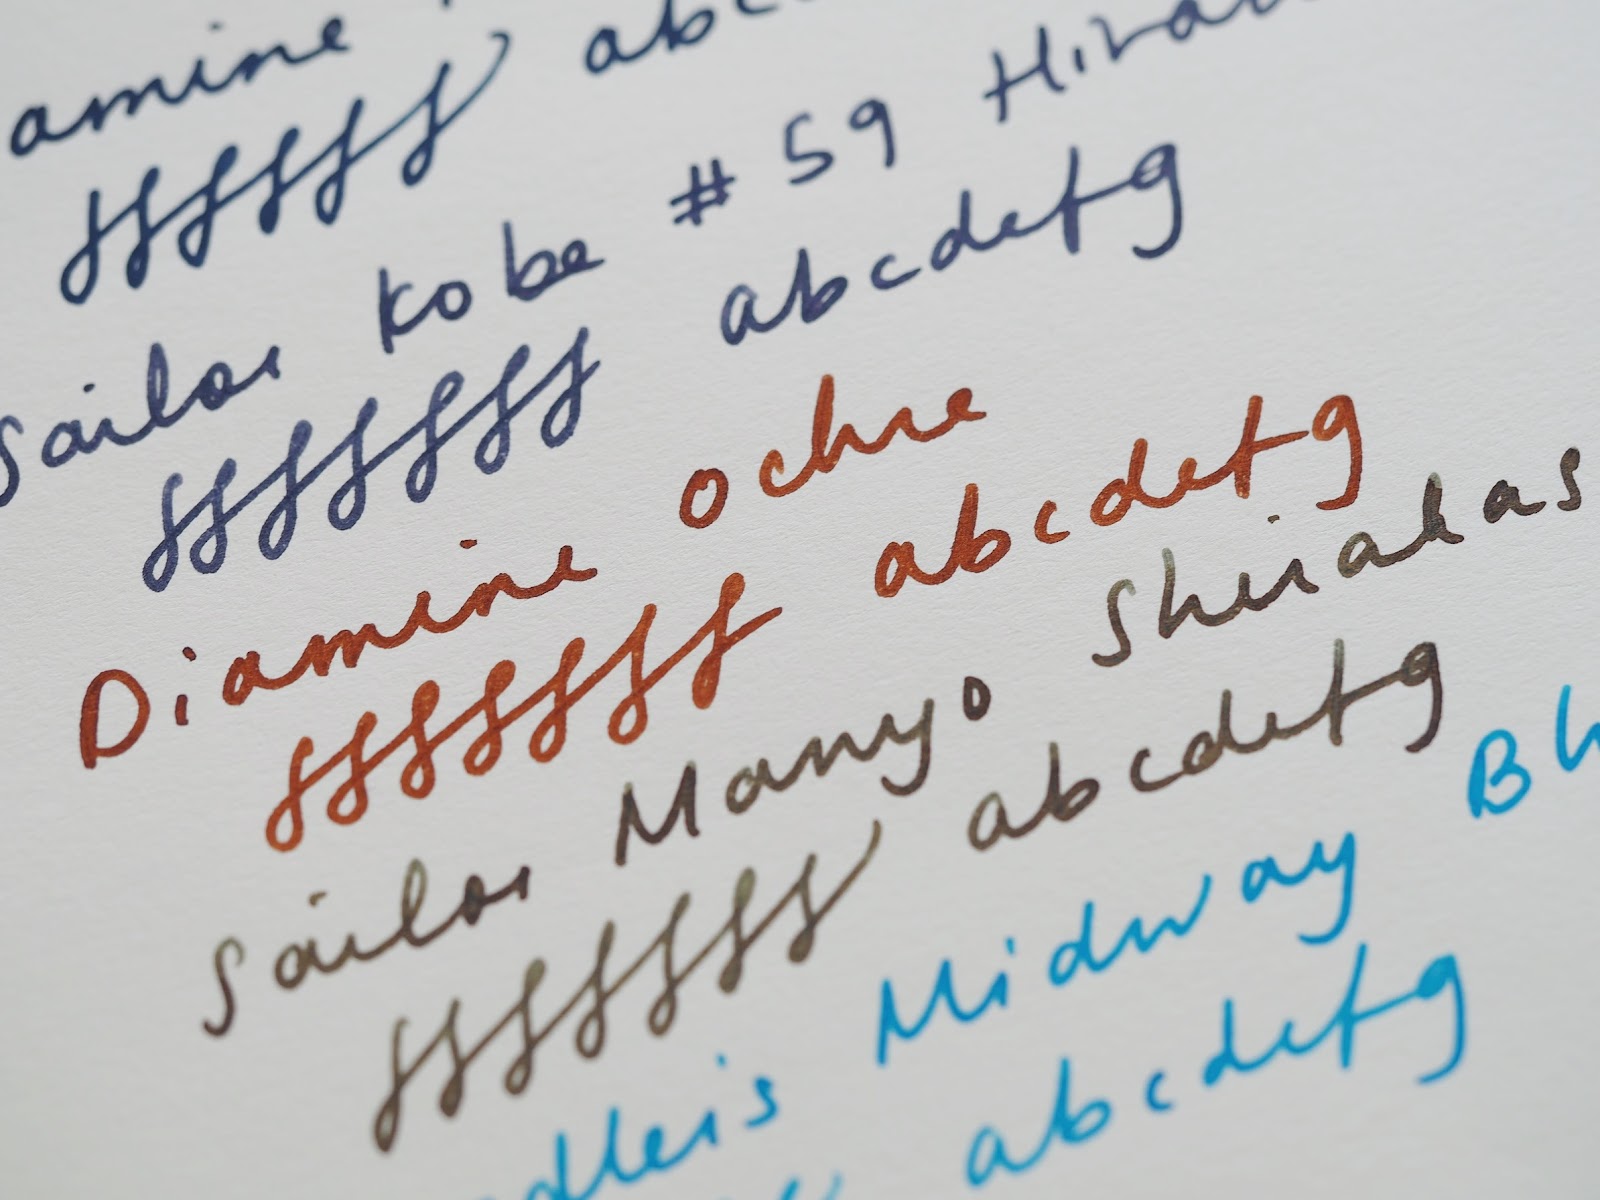 amine
fffffff abc
Sailor Kobe # 59 Hirano
fffffff abcdefg
Diamine Ochre
fffffff abcdefg
Sailor Manyo Shirakas
fffffff abcdefg
dleis Midway Bl
abcdefg